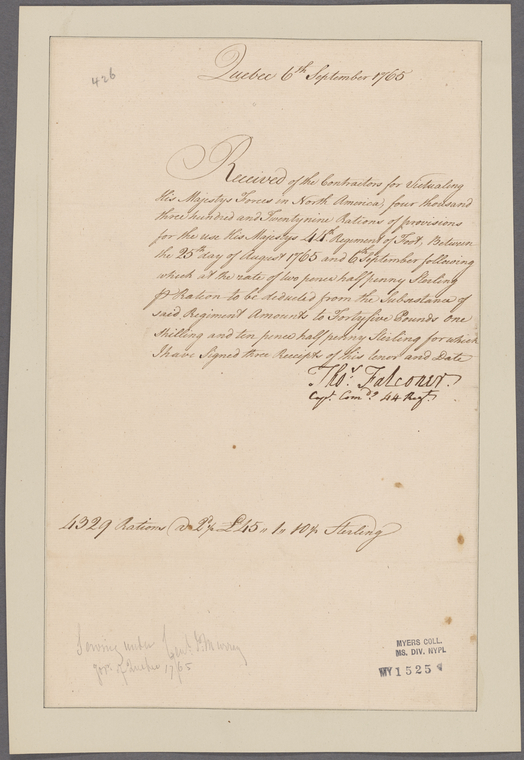 426
Quebec 6th September 1765
Received of the Contractors for Victualing
His Majestys Forces in North America, four thousand
three hundred and Twentynine Rations of provisions
for the use His Majestys 44th Regiment of Foot, Between
the 25th day of August 1765 and 6th September following
which at the rate of two pence half penny Sterling
⅌ Ration to be deducted from the Subsistance of
said Regiment Amounts to Fortyfive Pounds one
shilling and ten pence half penny Sterling for which
I have Signed three Receipts of this tenor and Date
Thos. Falconer.
Capt. Comdg. 44 Regt.
4329 Rations @ 2½ £45 " 1 " 10½ Sterling
Serving under Genl. J. Murray
Gov. of Quebec 1765
MYERS COLL.
MS. DIV. NYPL
MY 1525